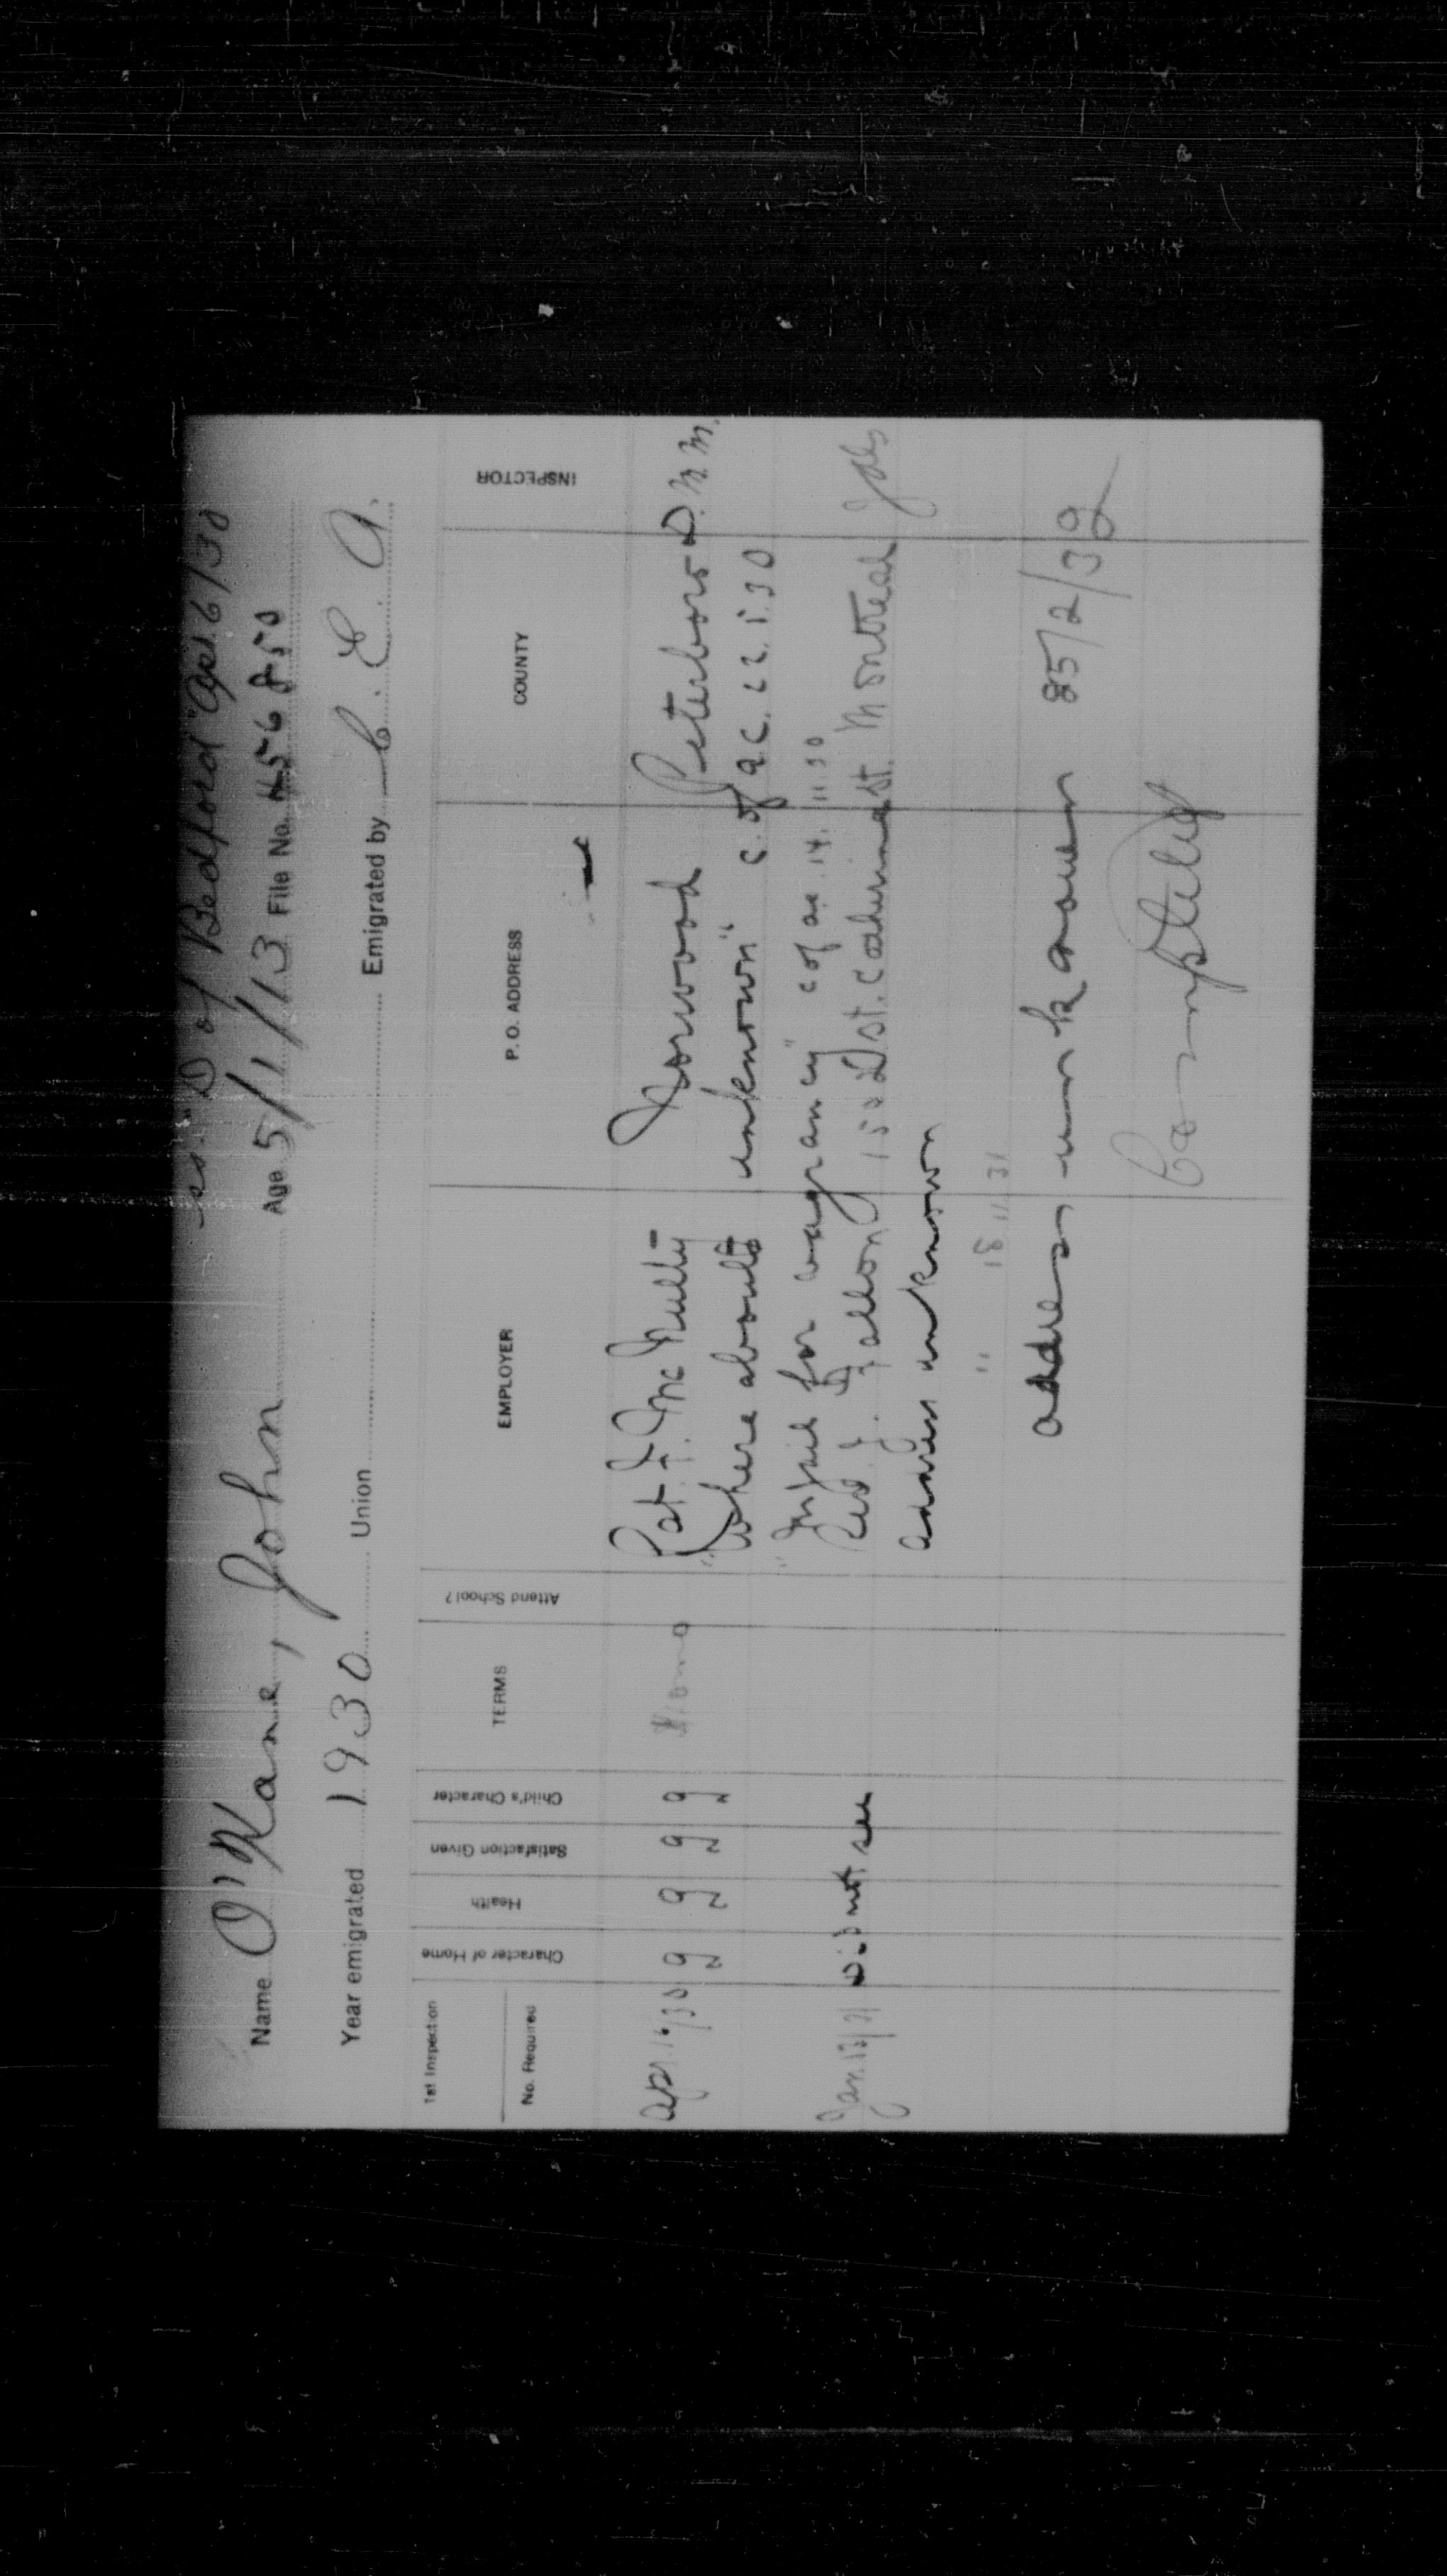 ss. "D of Bedford" Apr. 6/30
Name O'Kane, John Age 5/1/13 File No. 456850
Year emigrated 1930 Union Emigrated by C. E. A.
1st Inspection
No. Required
Character of Home Health Satisfaction Given Child's Character TERMS Attend School? EMPLOYER P. O. ADDRESS COUNTY INSPECTOR
Apr. 16/30 g g g g Pat. F. McNulty - Norwood Peterboro D. M. M.
"Where abouts unknown" C. of a.c. 22.5.30
"In jail for vagrancy" c of ac. 14. 11.30
Jan. 13/31 did not see St. Catherine St. Montreal
address unknown
" 18.11.31
address unknown 25/2/32